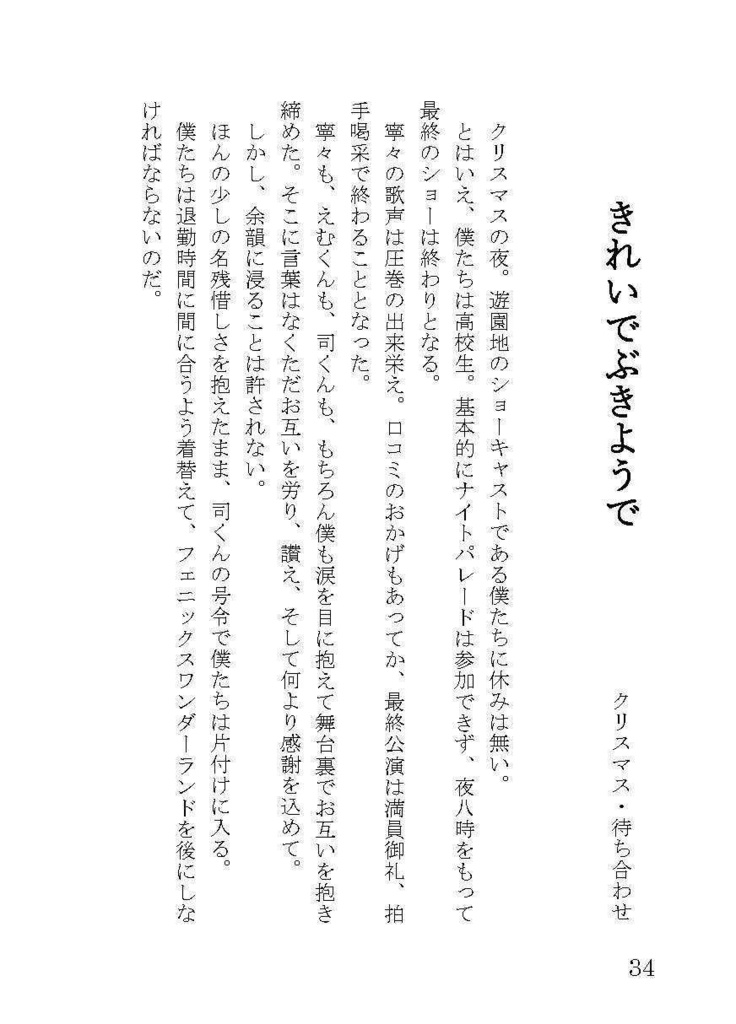 きれいでぶきようで
クリスマス・待ち合わせ
クリスマスの夜。遊園地のショーキャストである僕たちに休みは無い。
とはいえ、僕たちは高校生。基本的にナイトパレードは参加できず、夜八時をもって
最終のショーは終わりとなる。
寧々の歌声は圧巻の出来栄え。口コミのおかげもあってか、最終公演は満員御礼、拍
手喝采で終わることとなった。
寧々も、えむくんも、司くんも、もちろん僕も涙を目に抱えて舞台裏でお互いを抱き
締めた。そこに言葉はなくただお互いを労り、讃え、そして何より感謝を込めて。
しかし、余韻に浸ることは許されない。
ほんの少しの名残惜しさを抱えたまま、司くんの号令で僕たちは片付けに入る。
僕たちは退勤時間に間に合うよう着替えて、フェニックスワンダーランドを後にしな
ければならないのだ。
34